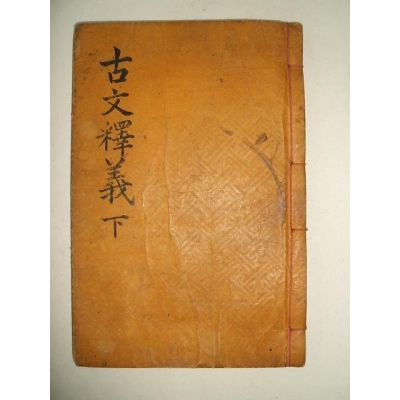 古文釋義下